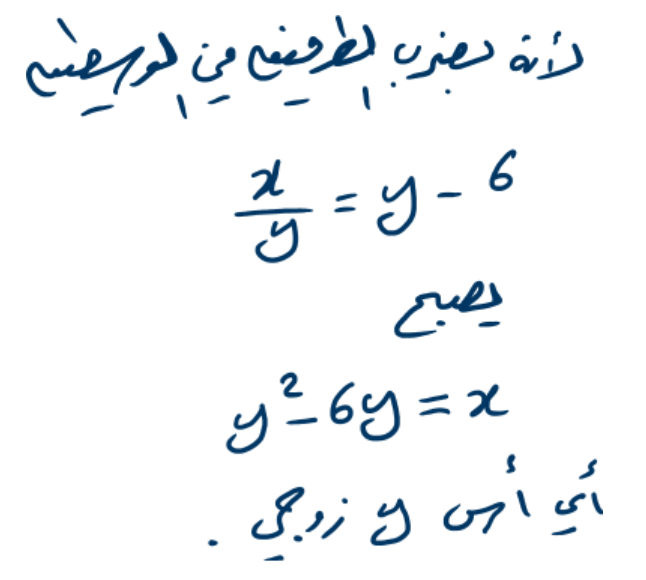 لأنة بضرب الطرفين في الوسطين
x/y = y - 6
يصبح
y² - 6y = x
أي أس y زوجي .